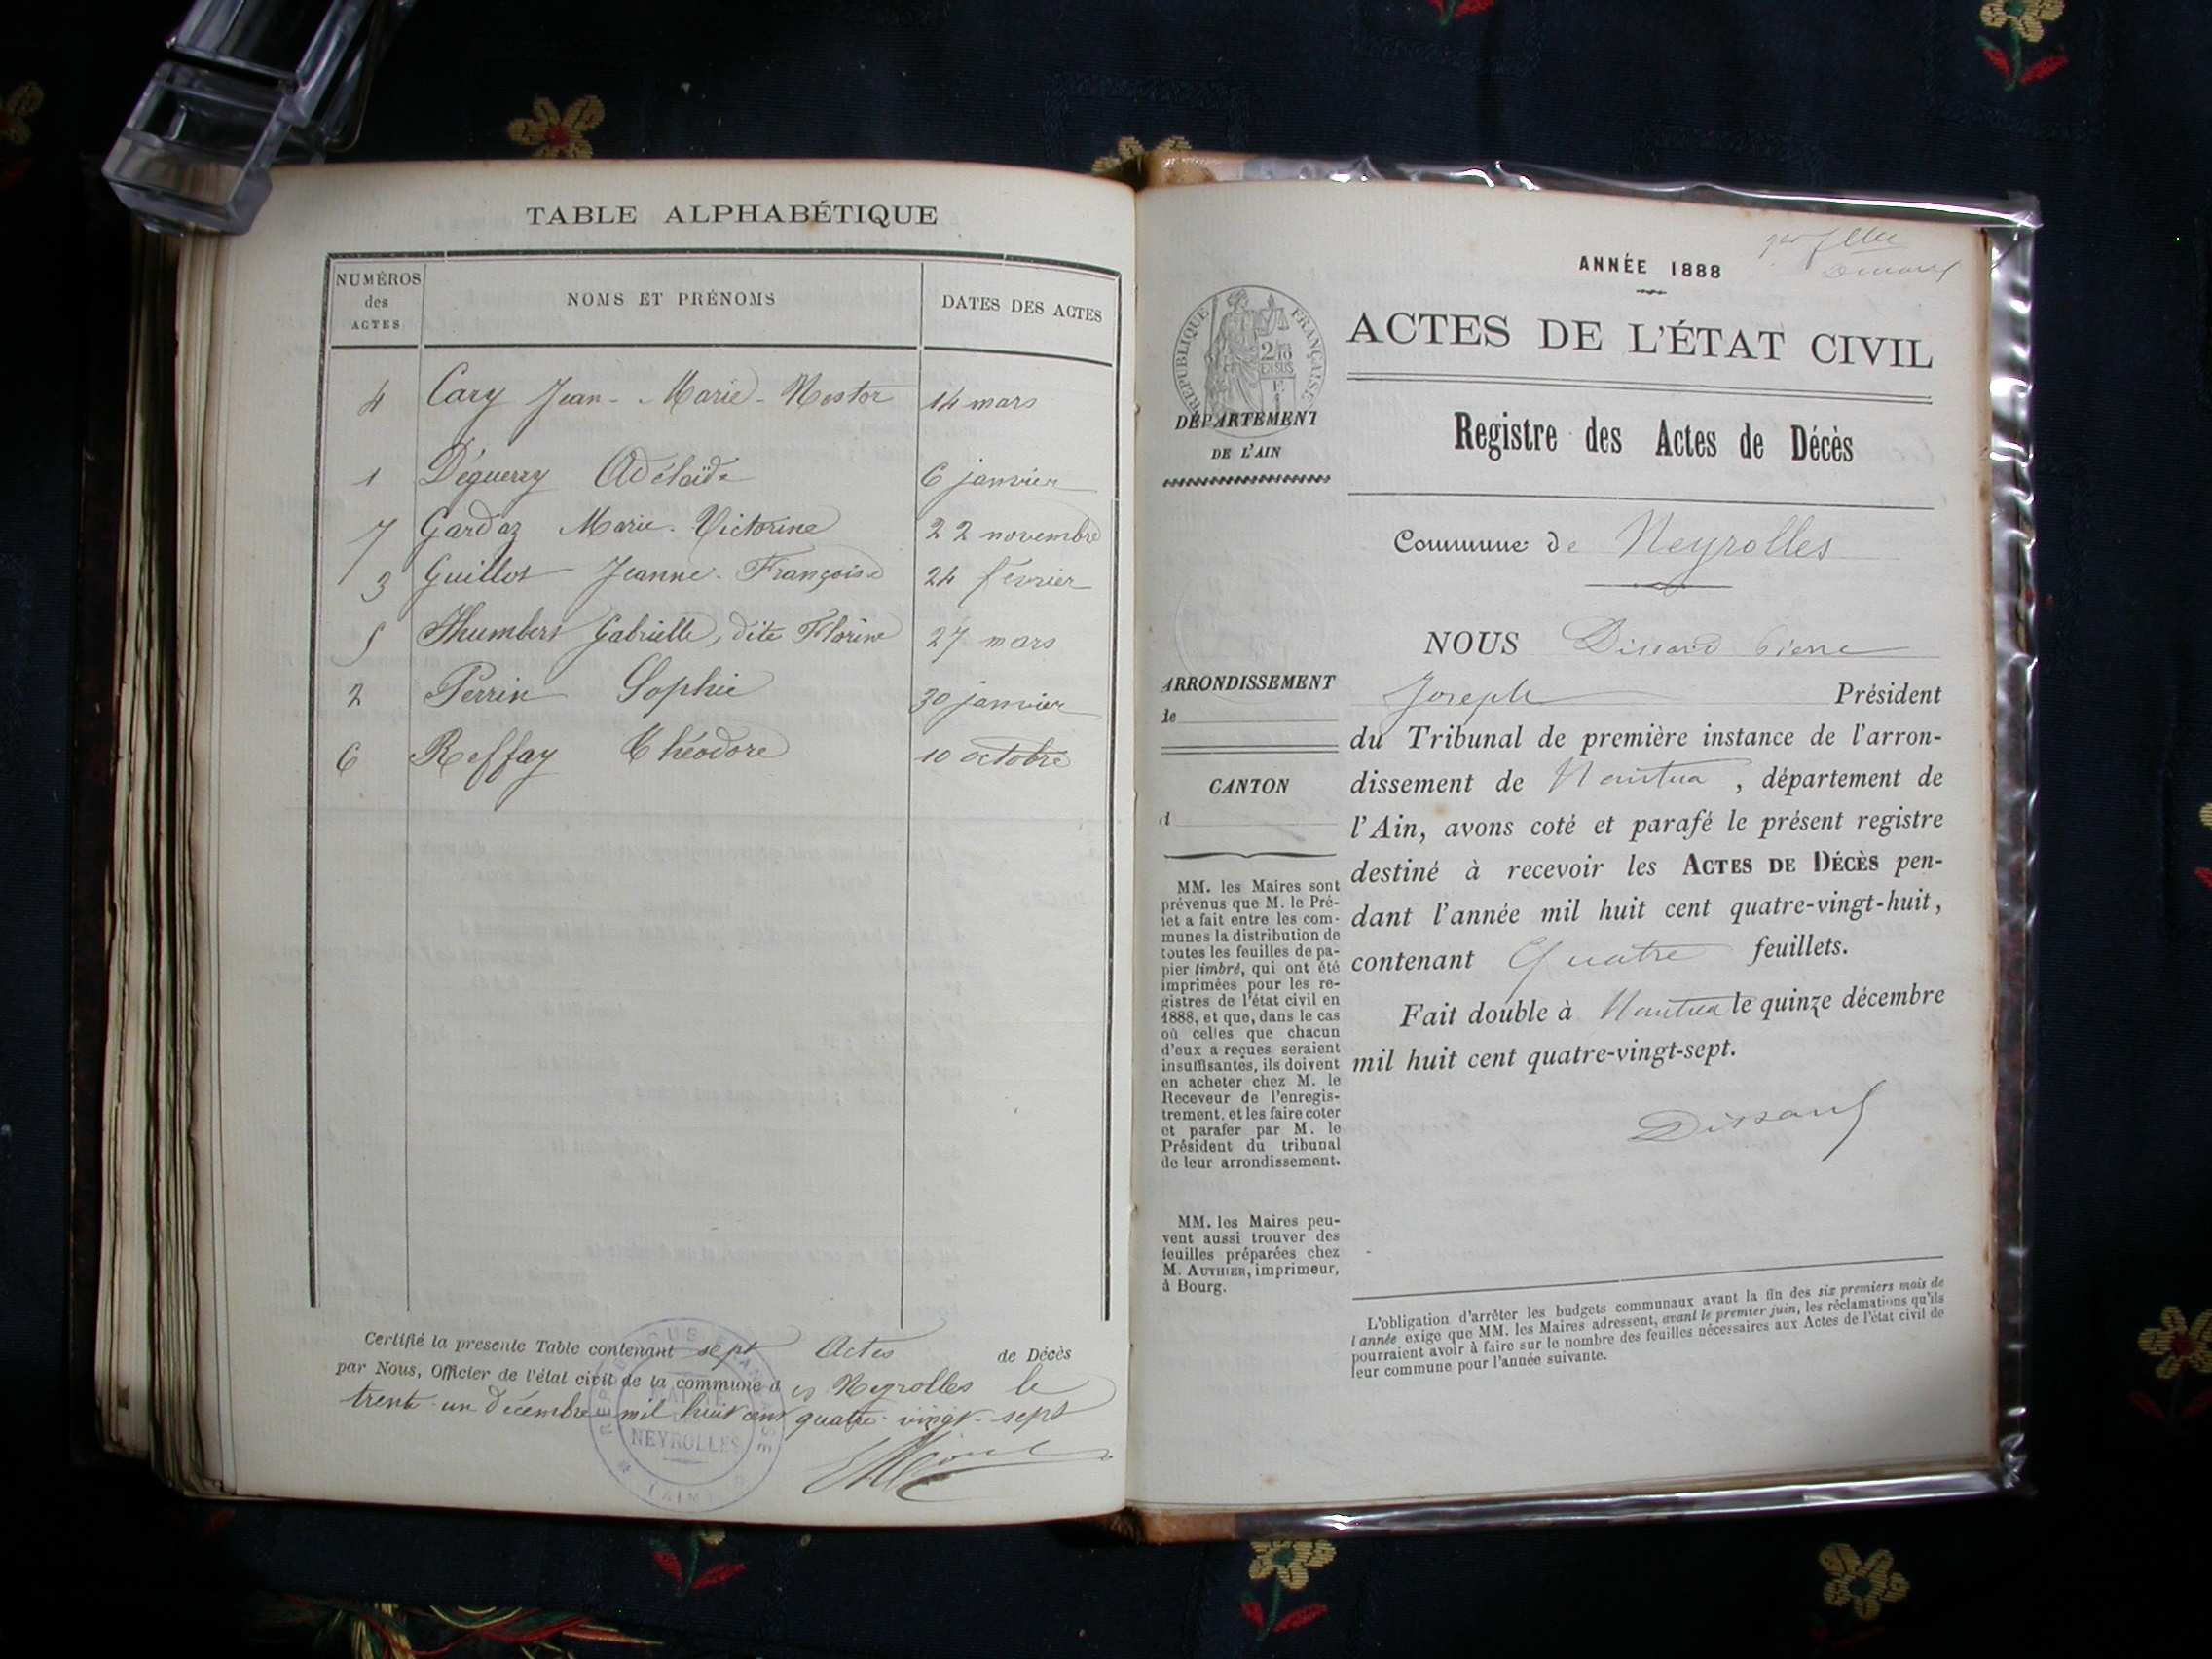 TABLE ALPHABÉTIQUE
NUMÉROS
des
ACTES
NOMS ET PRÉNOMS
DATES DES ACTES
4 Cary Jean-Marie-Nestor 14 mars
1 Déguerry Adélaïde 6 janvier
7 Gardaz Marie-Victorine 22 novembre
3 Guillot Jeanne-Françoise 24 février
5 Humbert Gabrielle, dite Florine 27 mars
2 Perrin Sophie 30 janvier
6 Reffay Théodore 10 octobre
Certifié la presente Table contenant sept Actes de Décès
par Nous, Officier de l'état civil de la commune des Neyrolles le
trente-un décembre mil huit cent quatre-vingt-sept
MAIRIE
NEYROLLES
(AIN)
ANNÉE 1888
RÉPUBLIQUE FRANÇAISE
ACTES DE L'ÉTAT CIVIL
DÉPARTEMENT
DE L'AIN
Registre des Actes de Décès
Commune de Neyrolles
NOUS Dissard Pierre
Joseph Président
du Tribunal de première instance de l'arron-
dissement de Nantua, département de
l'Ain, avons coté et parafé le présent registre
destiné à recevoir les ACTES DE DÉCÈS pen-
dant l'année mil huit cent quatre-vingt-huit,
contenant Quatre feuillets.
Fait double à Nantua le quinze décembre
mil huit cent quatre-vingt-sept.
Dissard
ARRONDISSEMENT
de
CANTON
d
MM. les Maires sont
prévenus que M. le Pré-
fet a fait entre les com-
munes la distribution de
toutes les feuilles de pa-
pier timbré, qui ont été
imprimées pour les re-
gistres de l'état civil en
1888, et que, dans le cas
où celles que chacun
d'eux a reçues seraient
insuffisantes, ils doivent
en acheter chez M. le
Receveur de l'enregis-
trement, et les faire coter
et parafer par M. le
Président du tribunal
de leur arrondissement.
MM. les Maires peu-
vent aussi trouver des
feuilles préparées chez
M. AUTHIER, imprimeur,
à Bourg.
L'obligation d'arrêter les budgets communaux avant la fin des six premiers mois de
l'année exige que MM. les Maires adressent, avant le premier juin, les réclamations qu'ils
pourraient avoir à faire sur le nombre des feuilles nécessaires aux Actes de l'état civil de
leur commune pour l'année suivante.